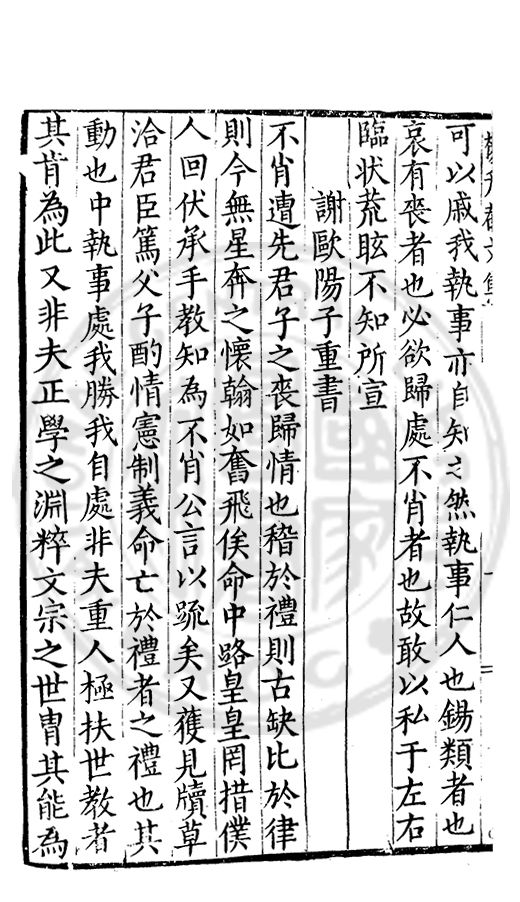 可以戚我執事亦自知之然執事仁人也錫類者也
哀有喪者也必欲歸處不肖者也故敢以私于左右
臨狀荒眩不知所宣
謝歐陽子重書
不肖遭先君子之喪歸情也稽於禮則古缺比於律
則今無星奔之懷翰如奮飛俟命中路皇皇罔措僕
人回伏承手教知為不肖公言以䟽矣又獲見牘草
洽君臣篤父子酌情憲制義命亡於禮者之禮也其
動也中執事處我勝我自處非夫重人極扶世教者
其肯為此又非夫正學之淵粹文宗之世胄其能為